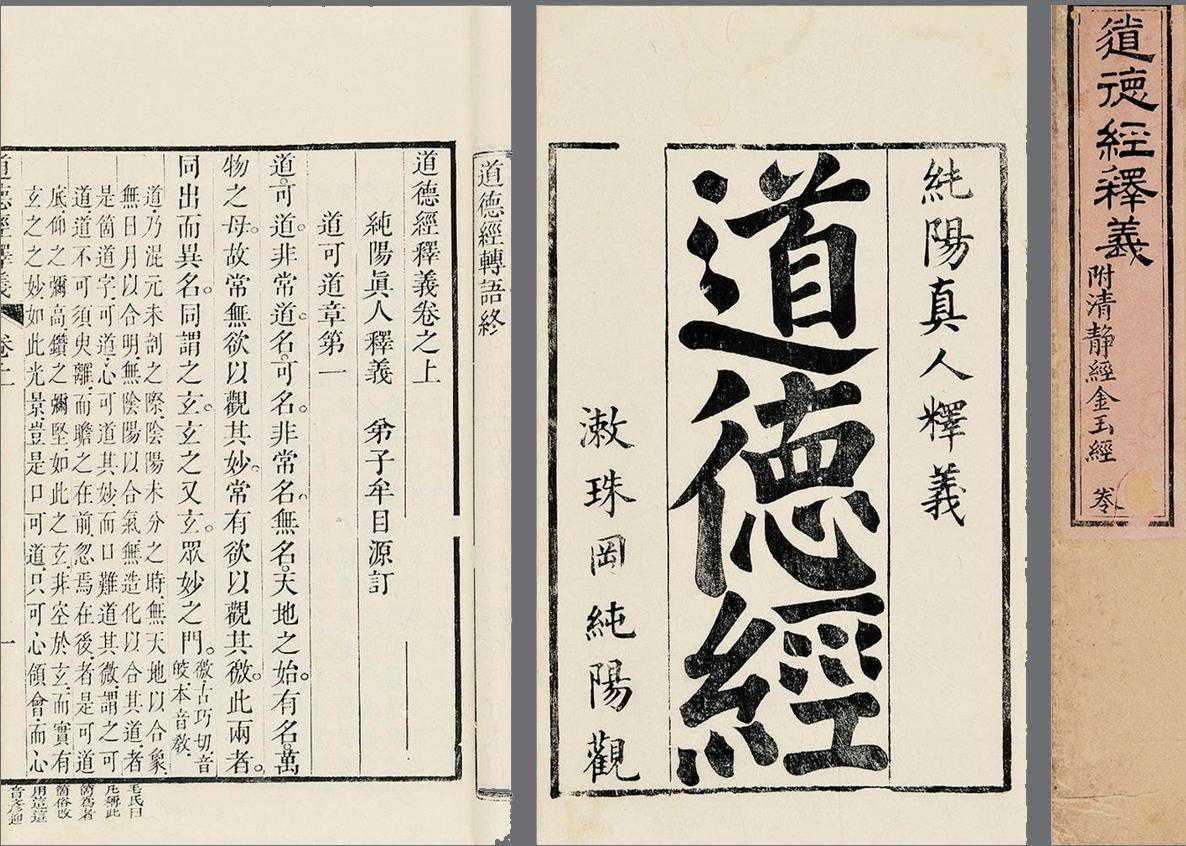 道德經釋義
附清靜經金玉經
純陽真人釋義
道德經
漱珠岡純陽觀
道德經轉語終
道德經釋義卷之上
純陽眞人釋義 弟子牟目源訂
道可道章第一
道。可道。非常道。名。可名。非常名。無名。天地之始。有名。萬
物之母。故常無欲以觀其妙。常有欲以觀其徼。此兩者。
同出而異名。同謂之玄。玄之又玄。眾妙之門。
徼古巧切音
皎本音敎
道乃混元未剖之際陰陽未分之時無天地以合象
無日月以合明無陰陽以合氣無造化以合其道者
是箇道字可道心可道其妙而口難道其微謂之可
道道不可須臾離而瞻之在前忽焉在後者是可道
底仰之彌高鑽之彌堅如此之玄非空於玄而實有
玄之之妙如此光景豈是口可道只可心領會而心
道德經釋義 卷上 一
毛氏曰
凡稱此
箇爲者
箇俗改
用這這
音彥迎